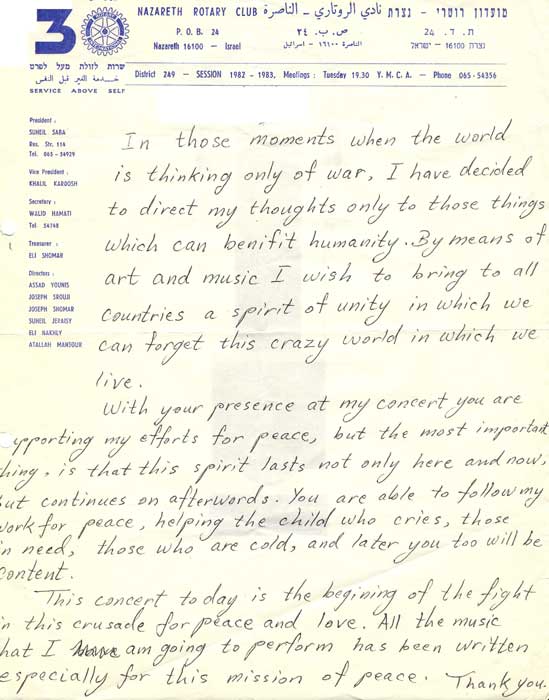 3
NAZARETH ROTARY CLUB نادي الروتاري - الناصرة מועדון רוטרי - נצרת
P. O. B. 24 ص. ب. ٢٤ ת. ד. 24
Nazareth 16100 - Israel الناصرة ١٦١٠٠ - اسرائيل נצרת 16100 - ישראל
שרות לזולת מעל לפרט
خدمة الغير قبل النفس
SERVICE ABOVE SELF
District 249 — SESSION 1982 - 1983, Meetings : Tuesday 19.30 Y. M. C. A. — Phone 065-54356
President :
SUHEIL SABA
Res. Str. 114
Tel. 065 - 54929
Vice President :
KHALIL KARDOSH
Secretary :
WALID HAMATI
Tel 54748
Treasurer :
ELI SHOMAR
Directors :
ASSAD YOUNIS
JOSEPH SROUJI
JOSEPH SHOMAR
SUHEIL JERAISY
ELI NAKHLY
ATALLAH MANSOUR
In those moments when the world
is thinking only of war, I have decided
to direct my thoughts only to those things
which can benifit humanity. By means of
art and music I wish to bring to all
countries a spirit of unity in which we
can forget this crazy world in which we
live.
With your presence at my concert you are
upporting my efforts for peace, but the most important
hing, is that this spirit lasts not only here and now,
but continues on afterwords. You are able to follow my
work for peace, helping the child who cries, those
in need, those who are cold, and later you too will be
content.
This concert today is the begining of the fight
in this crusade for peace and love. All the music
hat I am going to perform has been written
especially for this mission of peace. Thank you.